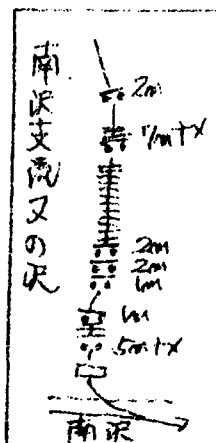 南沢支流又の沢
2m
2m
2m
1m
1m
5m+x
南沢